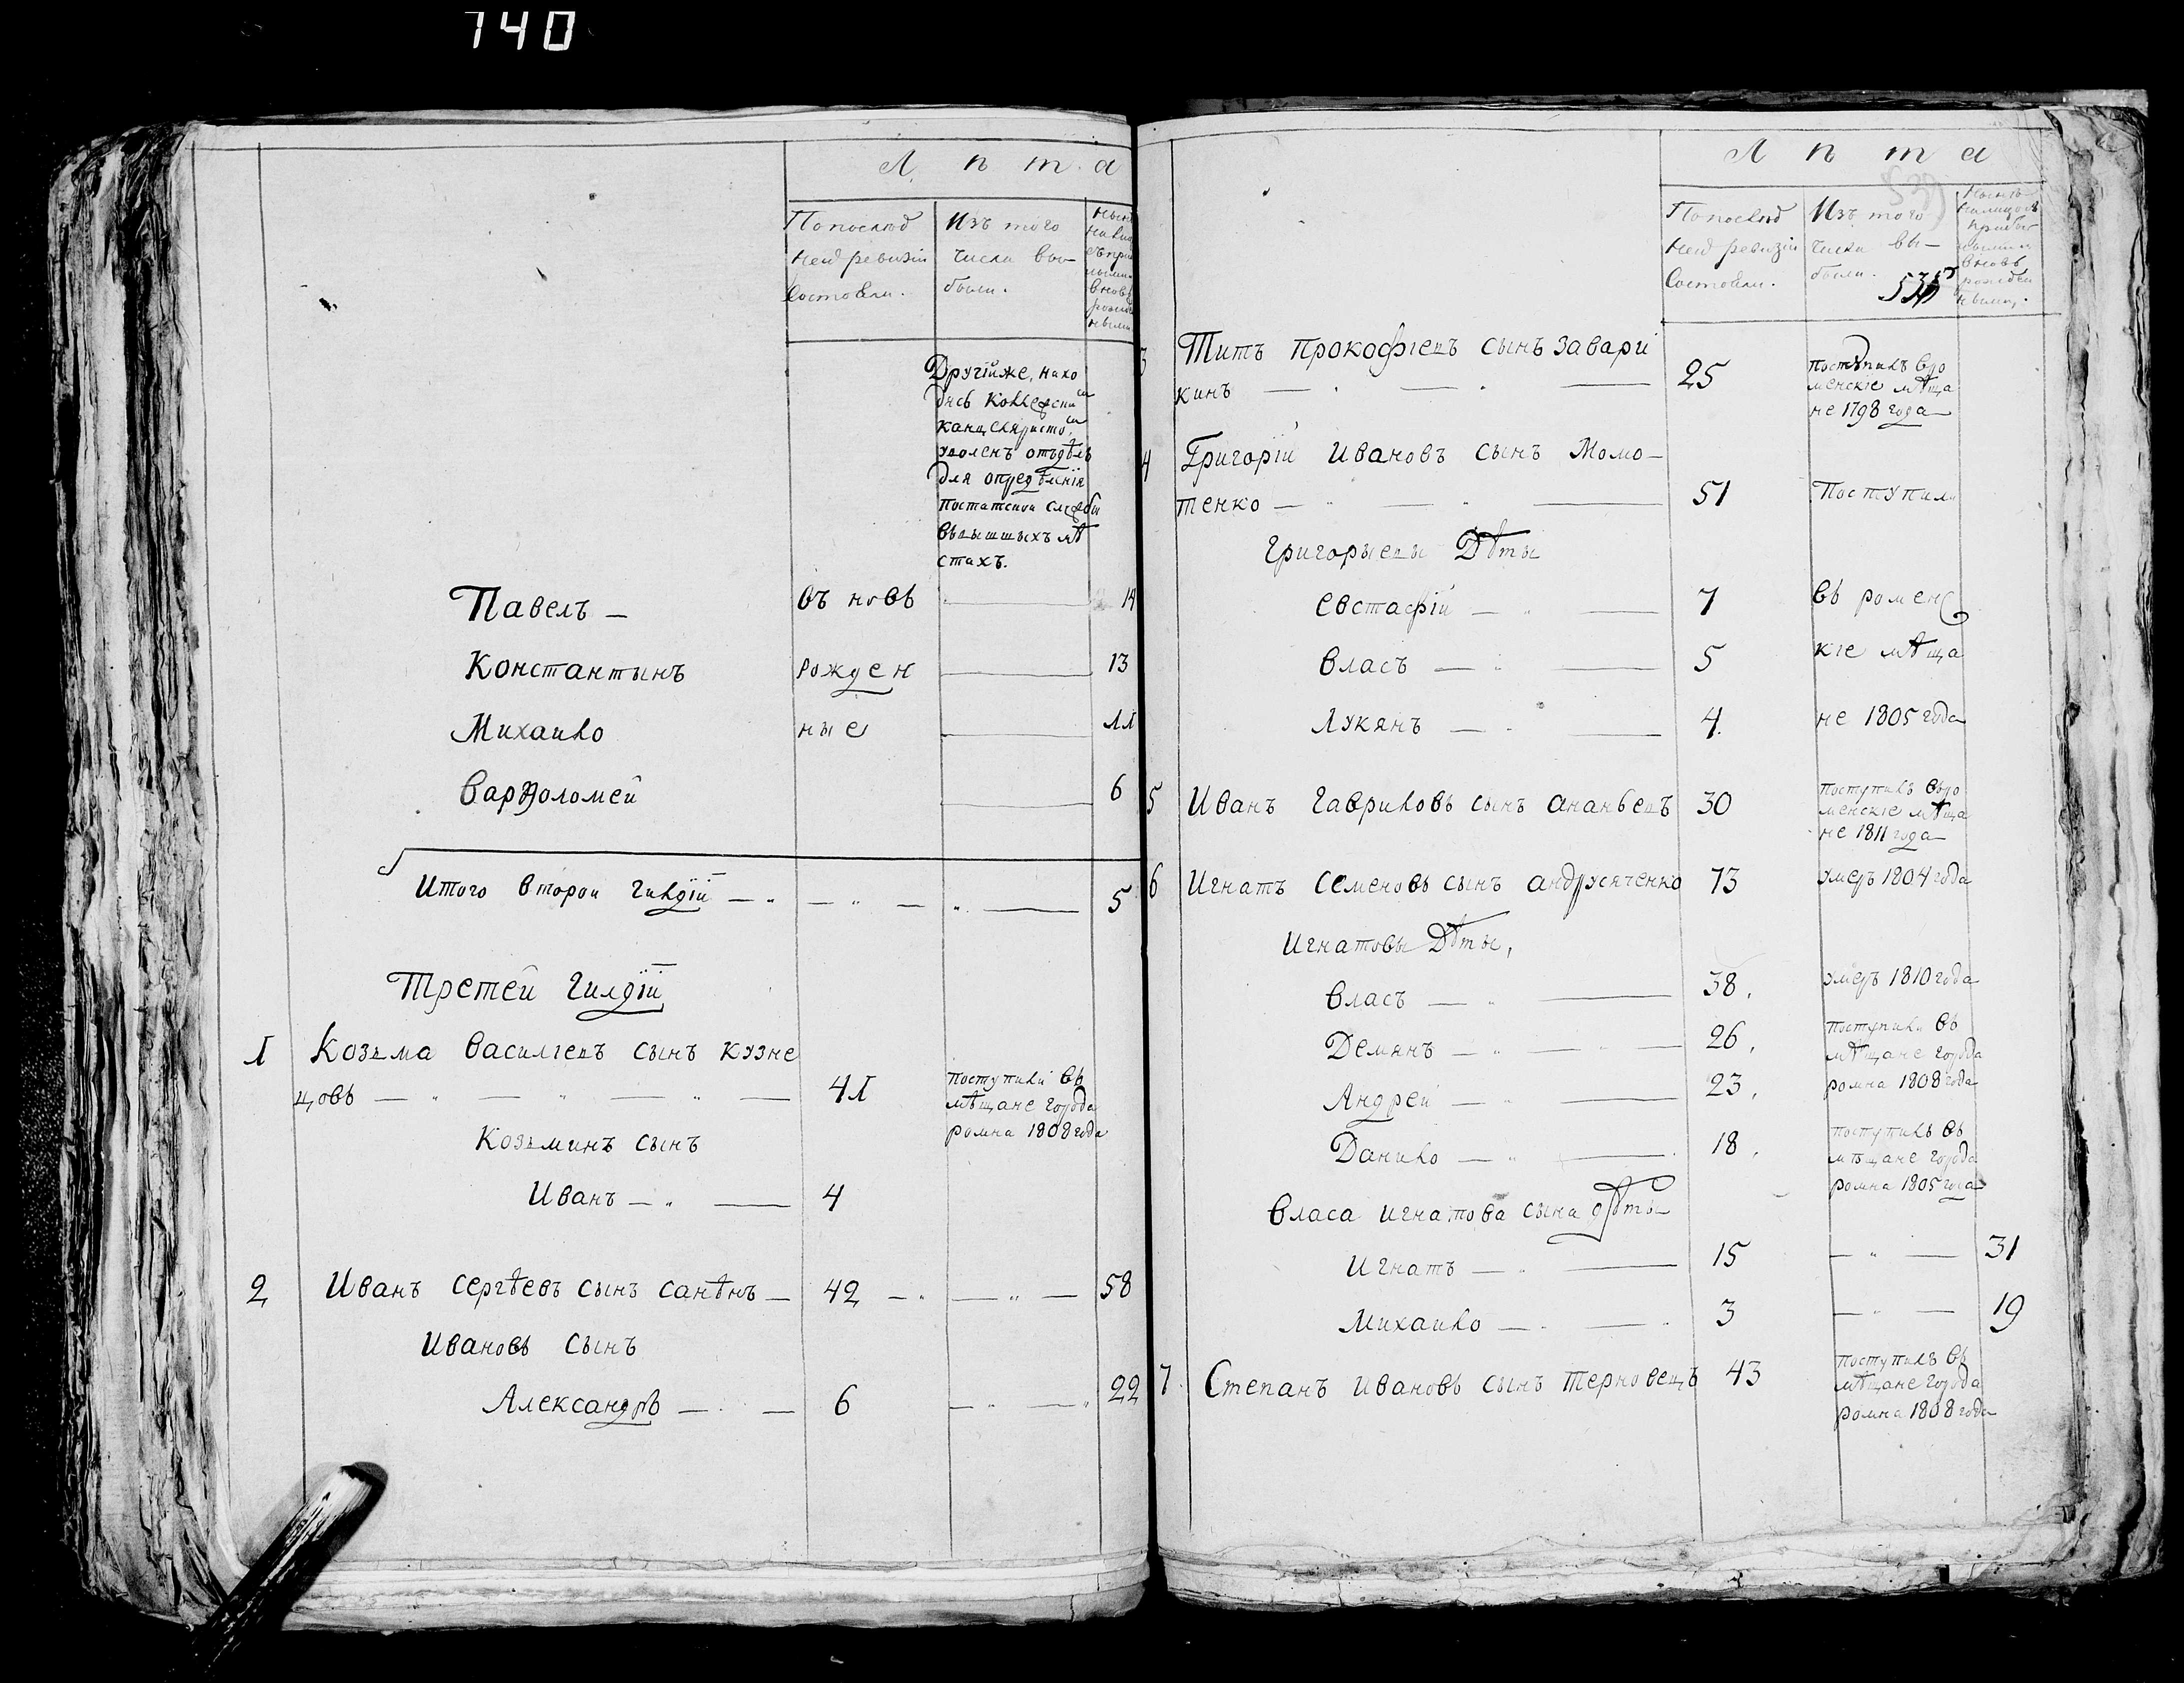 140
Л ѣ т а
По послѣд
ней ревизіи
состояли.
Изъ того
числа вы-
были.
Другійже, нахо
дясь
уволенъ отъдѣлъ
для опредѣленія
постатской службы
стахъ.
Павелъ — въ новь 14
Константынъ рожден 13
Михайло ные 11
Варѳоломей 6
Итого второй гилдіи — 5
Третей гилдіи
1 Козьма Василіевъ сынъ Кузне
цовъ — 41 поступили въ
мѣщане города
ромна 1808 года
Козьминъ сынъ
Иванъ — 4
2 Иванъ Сергѣевъ сынъ Санѣнъ — 42 — 58
Ивановъ сынъ
Александръ — 6 — 22
Л ѣ т а
По послѣд
ней ревизіи
состояли.
Изъ того
числа вы-
были.
Нынѣ
налицо съ
прибы
лыми и
вновь
рожден
ными.
3 Титъ Прокофіевъ сынъ Завари
кинъ — 25 поступилъ вро
менскіе мѣща
не 1798 года
4 Григорій Ивановъ сынъ Момо-
тенко — 51 Поступили
Григорыевы Дѣты
Евстафій — 7 въ роменс
Власъ — 5 кіе мѣща
Лукянъ — 4 не 1805 года
5 Иванъ Гавриловъ сынъ Ананьевъ 30 поступилъ вро
менскіе мѣща
не 1811 года
6 Игнатъ Семеновъ сынъ Андрусяченко 73 умеръ 1804 года
Игнатовы Дѣты,
Власъ — 38. умеръ 1810 года
Демянъ — 26. поступили въ
мѣщане города
Андрей — 23. ромна 1808 года
Данило — 18. поступилъ въ
мѣщане города
ромна 1805 года
Власа Игнатова сына дѣты
Игнатъ — 15 — 31
Михайло — 3 — 19
7 Степанъ Ивановъ сынъ Терновецъ 43 поступилъ въ
мѣщане города
ромна 1808 года